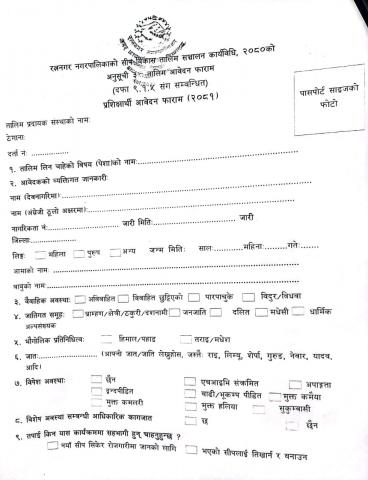 रत्ननगर नगरपालिकाको सीप विकास तालिम सञ्चालन कार्यविधि, २०८०को
अनुसूची ३: तालिम आवेदन फाराम
(दफा ९.१.५ संग सम्बन्धित)
प्रशिक्षार्थी आवेदन फाराम (२०८१)
पासपोर्ट साइजको
फोटो
तालिम प्रदायक संस्थाको नाम:
ठेगाना:
दर्ता नं:
१. तालिम लिन चाहेको विषय (पेशा)को नाम:
२. आवेदकको व्यक्तिगत जानकारी:
नाम (देवनागरिमा):
नाम (अंग्रेजी ठूलो अक्षरमा):
नागरिकता नं: जारी मिति: जारी
जिल्ला:
लिङ्ग: महिला पुरुष अन्य जन्म मिति: साल: महिना: गते:
आमाको नाम:
बाबुको नाम:
३. वैवाहिक अवस्था: अविवाहित विवाहित छुट्टिएको पारपाचुके विदुर/विधवा
४. जातिगत समूह: ब्राम्हण/क्षेत्री/ठकुरी/दशनामी जनजाति दलित मधेसी धार्मिक
अल्पसंख्यक
५. भौगोलिक प्रतिनिधित्व: हिमाल/पहाड तराइ/मधेश
६. जात: (आफ्नो जात/जाति लेख्नुहोस, जस्तै: राइ, लिम्बू, शेर्पा, गुरुङ, नेवार, यादव,
आदि)
७. विशेष अवस्था: छैन एचआइभि संक्रमित अपाङ्गता
द्वन्दपीडित बाढी/भूकम्प पीडित मुक्त कमैया
मुक्त कमलरी मुक्त हलिया सुकुम्बासी
८. विशेष अवस्था सम्बन्धी आधिकारिक कागजात छ छैन
९. तपाई किन यास कार्यक्रममा सहभागी हुन् चाहनुहुन्छ ?
नयाँ सीप सिकेर रोजगारीमा जानको लागि भएको सीपलाई तिखार्न र बनाउन